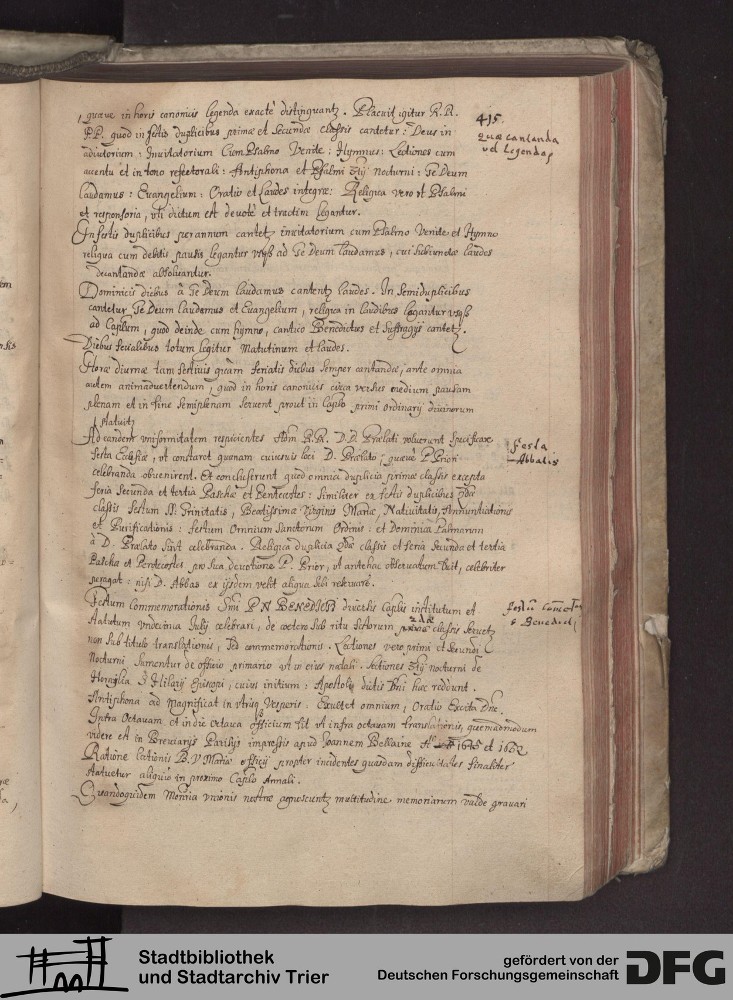 quæve in horis canonicis legenda exactè distinguantz. Placuit igitur R.R.
P.P. quod in festis duplicibus primæ et secundæ classis cantetur: Deus in
adiutorium: Invitatorium cum Psalmo Venite: Hymnus: Lectiones cum
accentu et in tono refectorali: Antiphona et Psalmi 3ij Nocturni: Te Deum
laudamus: Evangelium: Oratio et Laudes integræ: Reliqua vero ut Psalmi
et responsoria, uti dictum est devotè et tractim legantur.
In festis duplicibus per annum cantetz invitatorium cum Psalmo Venite et Hymno
reliqua cum debitis pausis legantur usqz ad Te Deum laudamus, cui subiunctæ laudes
decantandæ absolvantur.
Dominicis diebus à Te Deum laudamus cantentz laudes. In semiduplicibus
cantetur Te Deum laudamus et Evangelium, reliqua in laudibus legantur usqz
ad Caplum, quod deinde cum hymno, cantico Benedictus et suffragijs cantetz.
Diebus ferialibus totum legitur Matutinum et laudes.
Horæ diurnæ tam festivis quam feriatis diebus semper cantandæ, ante omnia
autem animadvertendum, quod in horis canonicis circa versus medium pausam
plenam et in fine semiplenam servent prout in Caplo primi ordinarij divinorum
statuitz
Ad eandem uniformitatem respicientes Adm R.R. D.D. Prælati voluerunt specificare
festa Ecclesiæ, ut constaret quænam cuiusvis loci D. Prælato, quæve P. Priori
celebranda obvenirent. Et concluserunt quod omnia duplicia primæ classis excepta
feria secunda et tertia Paschæ et Pentecostes: similiter ex festis duplicibus 2dæ
classis festum SS. Trinitatis, Beatissimæ Virginis Mariæ, Nativitatis, Annuntiationis
et Purificationis: festum Omnium Sanctorum Ordinis: et Dominica Palmarum
à D. Prælato sint celebranda. Reliqua duplicia 2dæ classis et feria secunda et tertia
Paschæ et Pentecostes pro sua devotione P. Prior, ut antehac observatum fuit, celebriter
peragat: nisi D. Abbas ex ijsdem velit aliqua sibi reservare.
Festum Commemorationis Smi P.N. BENEDICTI diversis Caplis institutum et
statutum undecima Julij celebrari, de cætero sub ritu festorum primæ 2dæ classis servetz
non sub titulo translationis, sed commemorationis. Lectiones vero primi et secundi
Nocturni sumentur de officio primario ut in eius natali. Lectiones 3ij nocturni de
Homilia S. Hilarij Episcopi, cuius initium: Apostolis dictis Dni hæc reddunt.
Antiphona ad Magnificat in utrisq Vesperis: Exultet omnium, Oratio Excita Dne.
Intra Octavam et in die octava officium fit ut infra octavam translationis, quemadmodum
videre est in Breviarijs Parisijs impressis apud Joannem Bellaine Ao 1605 et 1662
Ratione lectionis B.V. Mariæ officij propter incidentes quasdam difficultates finaliter
statuetur aliquid in proximo Caplo Annali.
Quandoquidem Monria unionis nostræ agnoscuntz multitudine memoriarum valde gravari
415.
Quæ cantanda
vel Legenda
Festa
Abbatis
festū Comem
S. Benedicti
Stadtbibliothek
und Stadtarchiv Trier
gefördert von der
Deutschen Forschungsgemeinschaft
DFG